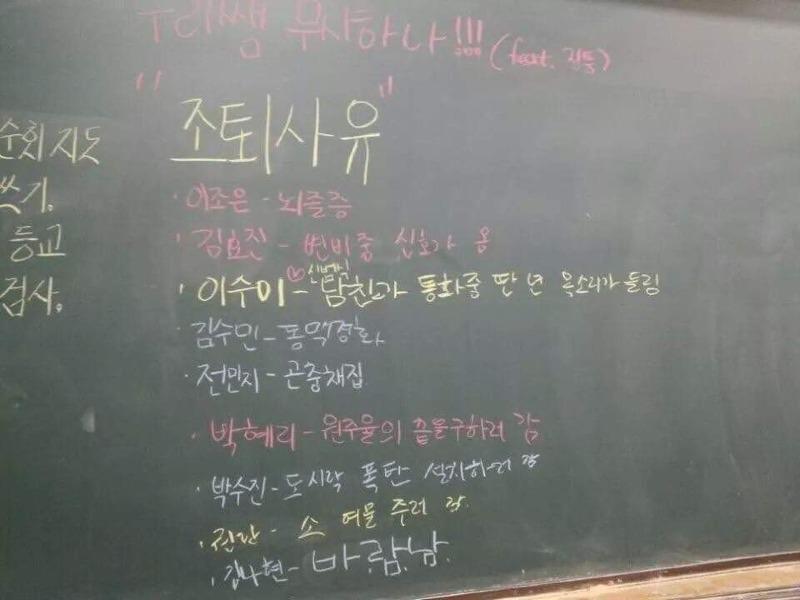 우리쌤 무사하나!!!
"조퇴사유"
순회지도
쓰기.
등교
검사.
· 이조은 - 뇌졸증
· 김효진 - 변비중 신호가 옴
· 이수미 - 남친과 통화중 딴 년 목소리가 들림
· 김수민 - 동맥경화
· 전민지 - 곤충채집
· 박혜리 - 원주율의 끝을구하러 감
· 박수진 - 도시락 폭탄 설치하러 감
· - 소 여물 주러 감
· 김나현 - 바.람.남.